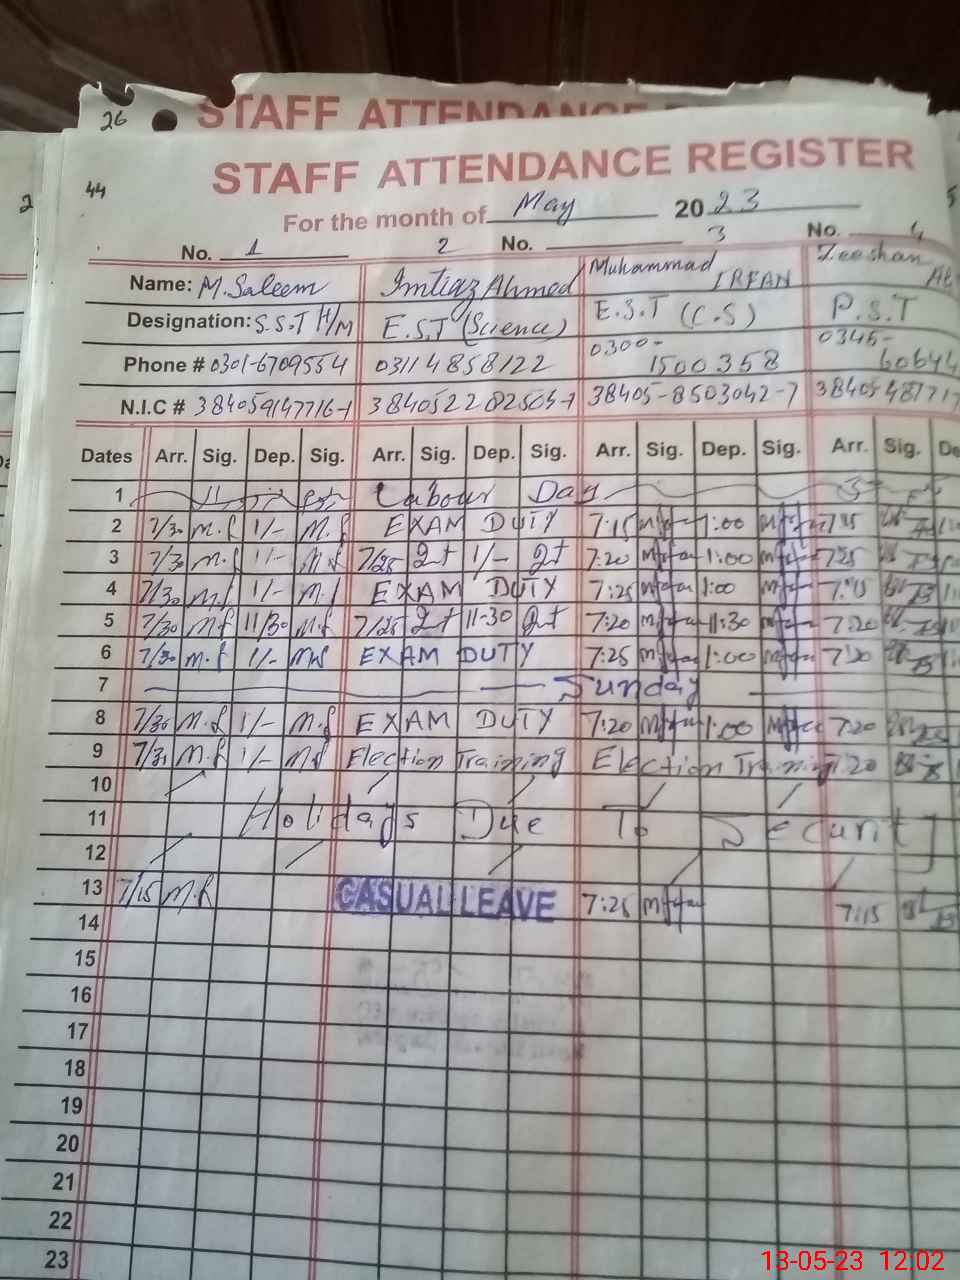 26 STAFF ATTENDANCE
44 STAFF ATTENDANCE REGISTER
For the month of May 2023
No. 1 2 No. 3 No. 4
Name: M. Saleem Imtiaz Ahmed Muhammad IRFAN Zeeshan
Designation: S.S.T H/M E.S.T (Science) E.S.T (C.S) P.S.T
Phone # 0301-6709554 03114858122 0300-1500358 0345-
N.I.C # 3840522825 38405-8503042-7
Dates Arr. Sig. Dep. Sig. Arr. Sig. Dep. Sig. Arr. Sig. Dep. Sig. Arr. Sig.
1 Labour Day
2 7/30 M.S 1/- M.S EXAM DUTY 7:15 1:00
3 7/30 M.S 1/- M.S 7/25 1/- 7:20 1:00 7:25
4 7/30 M.S 1/- M.S EXAM DUTY 7:25 1:00 7:15
5 7/30 M.S 11/30 M.S 7/25 11-30 7:20 11:30 7:20
6 7/30 M.S 1/- M.S EXAM DUTY 7:25 1:00 7:20
7 Sunday
8 7/30 M.S 1/- M.S EXAM DUTY 7:20 1:00 7:20
9 7/30 M.S 1/- M.S Election Training Election Training 7:20
10
11 Holidays Due To Security
12
13 7/15 M.S CASUAL LEAVE 7:25 7:15
14
15
16
17
18
19
20
21
22
23
13-05-23 12:02